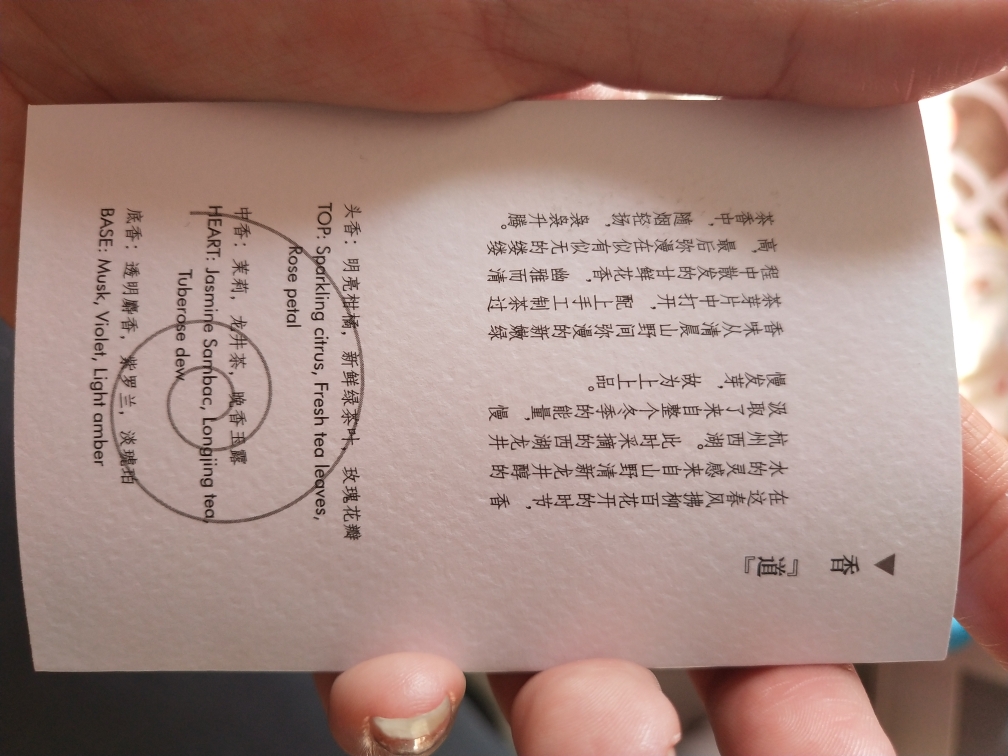 香
『道』
在这春风拂柳百花开的时节，香
水的灵感来自山野清新龙井醇的
杭州西湖。此时采摘的西湖龙井
汲取了来自整个冬季的能量，慢
慢发芽，故为上上品。
香味从清晨山野间弥漫的新嫩绿
茶芽片中打开，配上手工制茶过
程中散发的甘鲜花香，幽雅而清
高，最后弥漫在似有似无的缕缕
茶香中，随烟轻扬，袅袅升腾。
头香：明亮柑橘，新鲜绿茶叶，玫瑰花瓣
TOP: Sparkling citrus, Fresh tea leaves,
Rose petal
中香：茉莉，龙井茶，晚香玉露
HEART: Jasmine Sambac, Longjing tea,
Tuberose dew
底香：透明麝香，紫罗兰，淡琥珀
BASE: Musk, Violet, Light amber